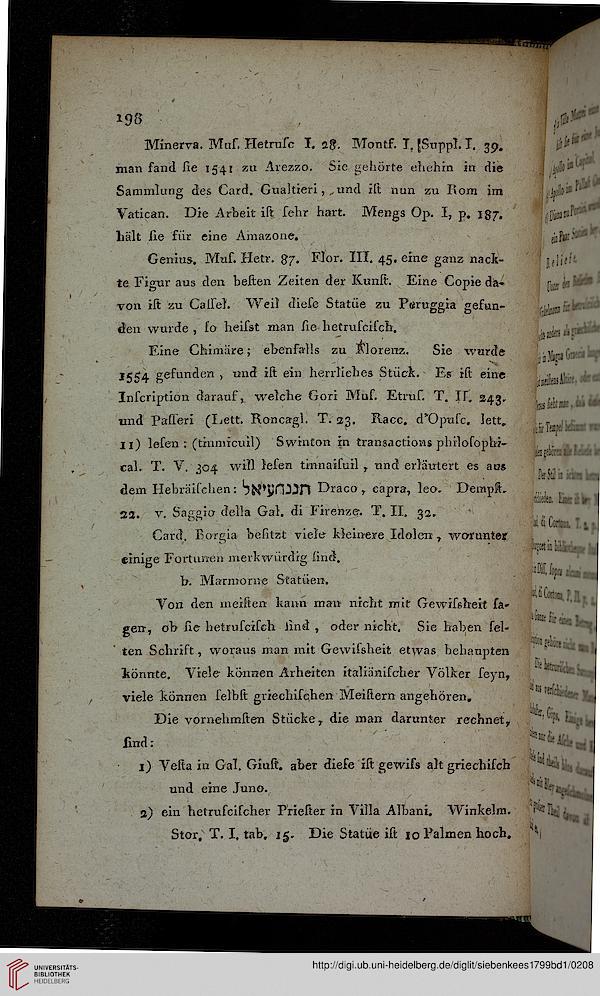 198
Minerva. Muſ. Hetruſc I. 28. Montf. I. [Suppl. I. 39.
man fand ſie 1541 zu Arezzo. Sie gehörte ehehin in die
Sammlung des Card. Gualtieri, und iſt nun zu Rom im
Vatican. Die Arbeit iſt ſehr hart. Mengs Op. I, p. 187.
hält ſie für eine Amazone.
Genius. Muſ. Hetr. 87. Flor. III. 45. eine ganz nack-
te Figur aus den beſten Zeiten der Kunſt. Eine Copie da-
von iſt zu Caſſel. Weil dieſe Statüe zu Peruggia gefun-
den wurde, ſo heiſst man ſie hetruſciſch.
Eine Chimäre; ebenfalls zu Florenz. Sie wurde
1554 gefunden, und iſt ein herrliches Stück. Es iſt eine
Inſcription darauf, welche Gori Muſ. Etruſ. T. II. 243.
und Paſſeri (Lett. Roncagl. T. 23. Racc. d'Opuſc. lett.
11) leſen: (tinmicuil) Swinton in transactions philoſophi-
cal. T. V. 304 will leſen tinnaiſuil, und erläutert es aus
dem Hebräiſchen: תננחעיאל Draco, capra, leo. Dempſt.
22. v. Saggio della Gal. di Firenze. T. II. 32.
Card. Borgia beſitzt viele kleinere Idolen, worunter
einige Fortunen merkwürdig ſind.
b. Marmorne Statüen.
Von den meiſten kann man nicht mit Gewiſsheit ſa-
gen, ob ſie hetruſciſch ſind, oder nicht. Sie haben ſel-
ten Schrift, woraus man mit Gewiſsheit etwas behaupten
könnte. Viele können Arbeiten italiäniſcher Völker ſeyn,
viele können ſelbſt griechiſchen Meiſtern angehören.
Die vornehmſten Stücke, die man darunter rechnet,
ſind:
1) Veſta in Gal. Giuſt. aber dieſe iſt gewiſs alt griechiſch
und eine Juno.
2) ein hetruſciſcher Prieſter in Villa Albani. Winkelm.
Stor. T. I. tab. 15. Die Statüe iſt 10 Palmen hoch.
UNIVERSITÄTS-
BIBLIOTHEK
HEIDELBERG
http://digi.ub.uni-heidelberg.de/diglit/siebenkees1799bd1/0208